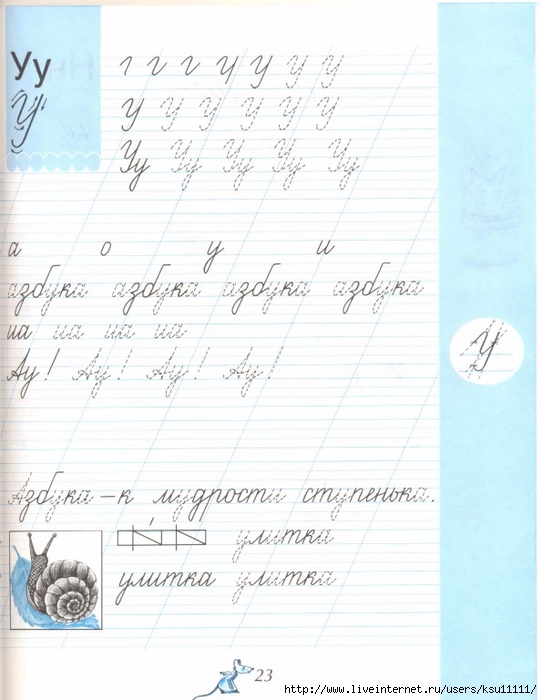 Уу
У
г г г ч У У У
У У У У У У
Уу Уу Уу Уу Уу
а о у и
азбука азбука азбука азбука
иа иа иа иа
Ау! Ау! Ау! Ау!
У
Азбука – к мудрости ступенька.
улитка
улитка улитка
23
http://www.liveinternet.ru/users/ksu11111/